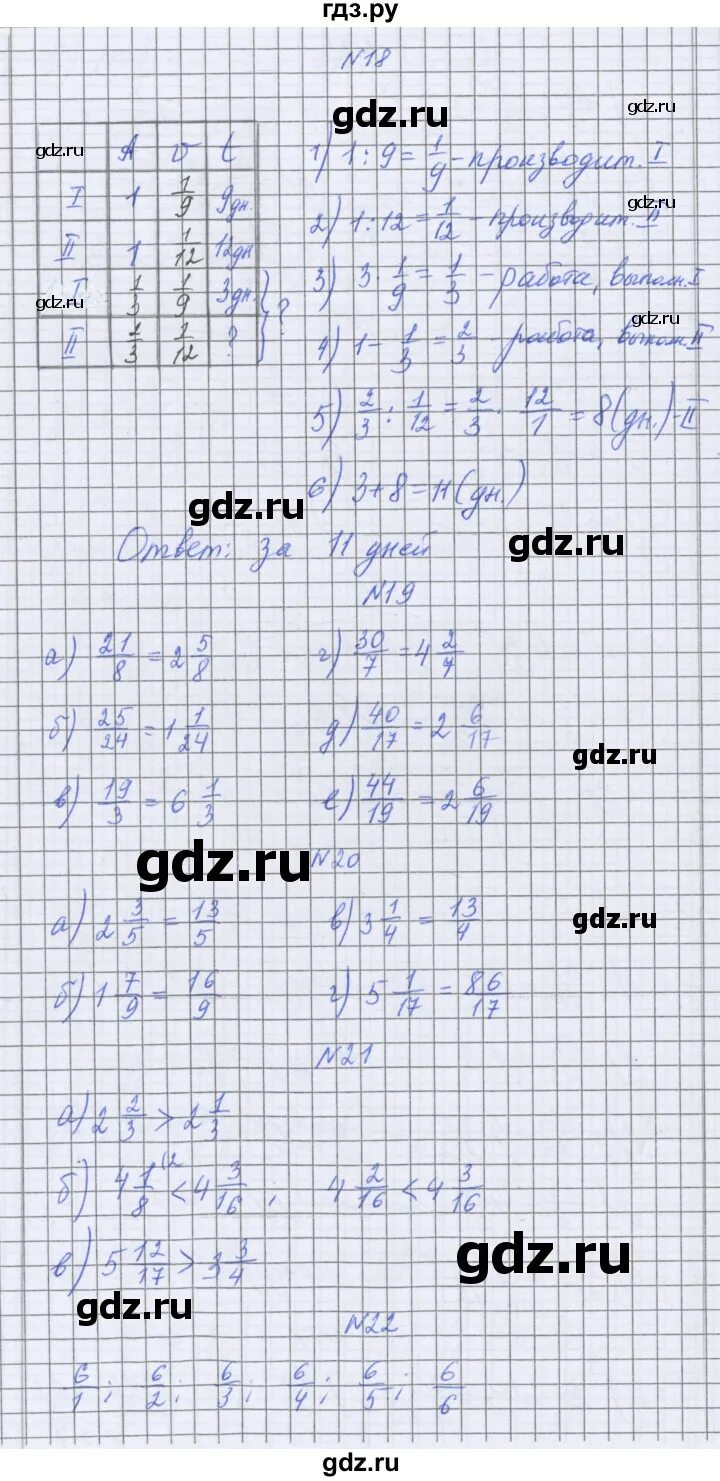 гдз.ру
N18
gdz.ru
A v t
I 1 1/9 9дн.
II 1 1/12 12дн
I 1/3 1/9 3дн. } ?
II 2/3 1/12 ?
1) 1 : 9 = 1/9 - производит. I
2) 1 : 12 = 1/12 - производит. II
3) 3 · 1/9 = 1/3 - работа, выполн. I
4) 1 - 1/3 = 2/3 - работа, выполн. II
5) 2/3 : 1/12 = 2/3 · 12/1 = 8 (дн.) - II
6) 3 + 8 = 11 (дн.)
Ответ: за 11 дней
N19
а) 21/8 = 2 5/8
г) 30/7 = 4 2/7
б) 25/24 = 1 1/24
д) 40/17 = 2 6/17
в) 19/3 = 6 1/3
е) 44/19 = 2 6/19
N20
а) 2 3/5 = 13/5
в) 3 1/4 = 13/4
б) 1 7/9 = 16/9
г) 5 1/17 = 86/17
N21
а) 2 2/3 > 2 1/3
б) 4 1/8 (2 < 4 3/16 , 4 2/16 < 4 3/16
в) 5 12/17 > 3 3/4
N22
6/1 ; 6/2 ; 6/3 ; 6/4 ; 6/5 ; 6/6
gdz.ru